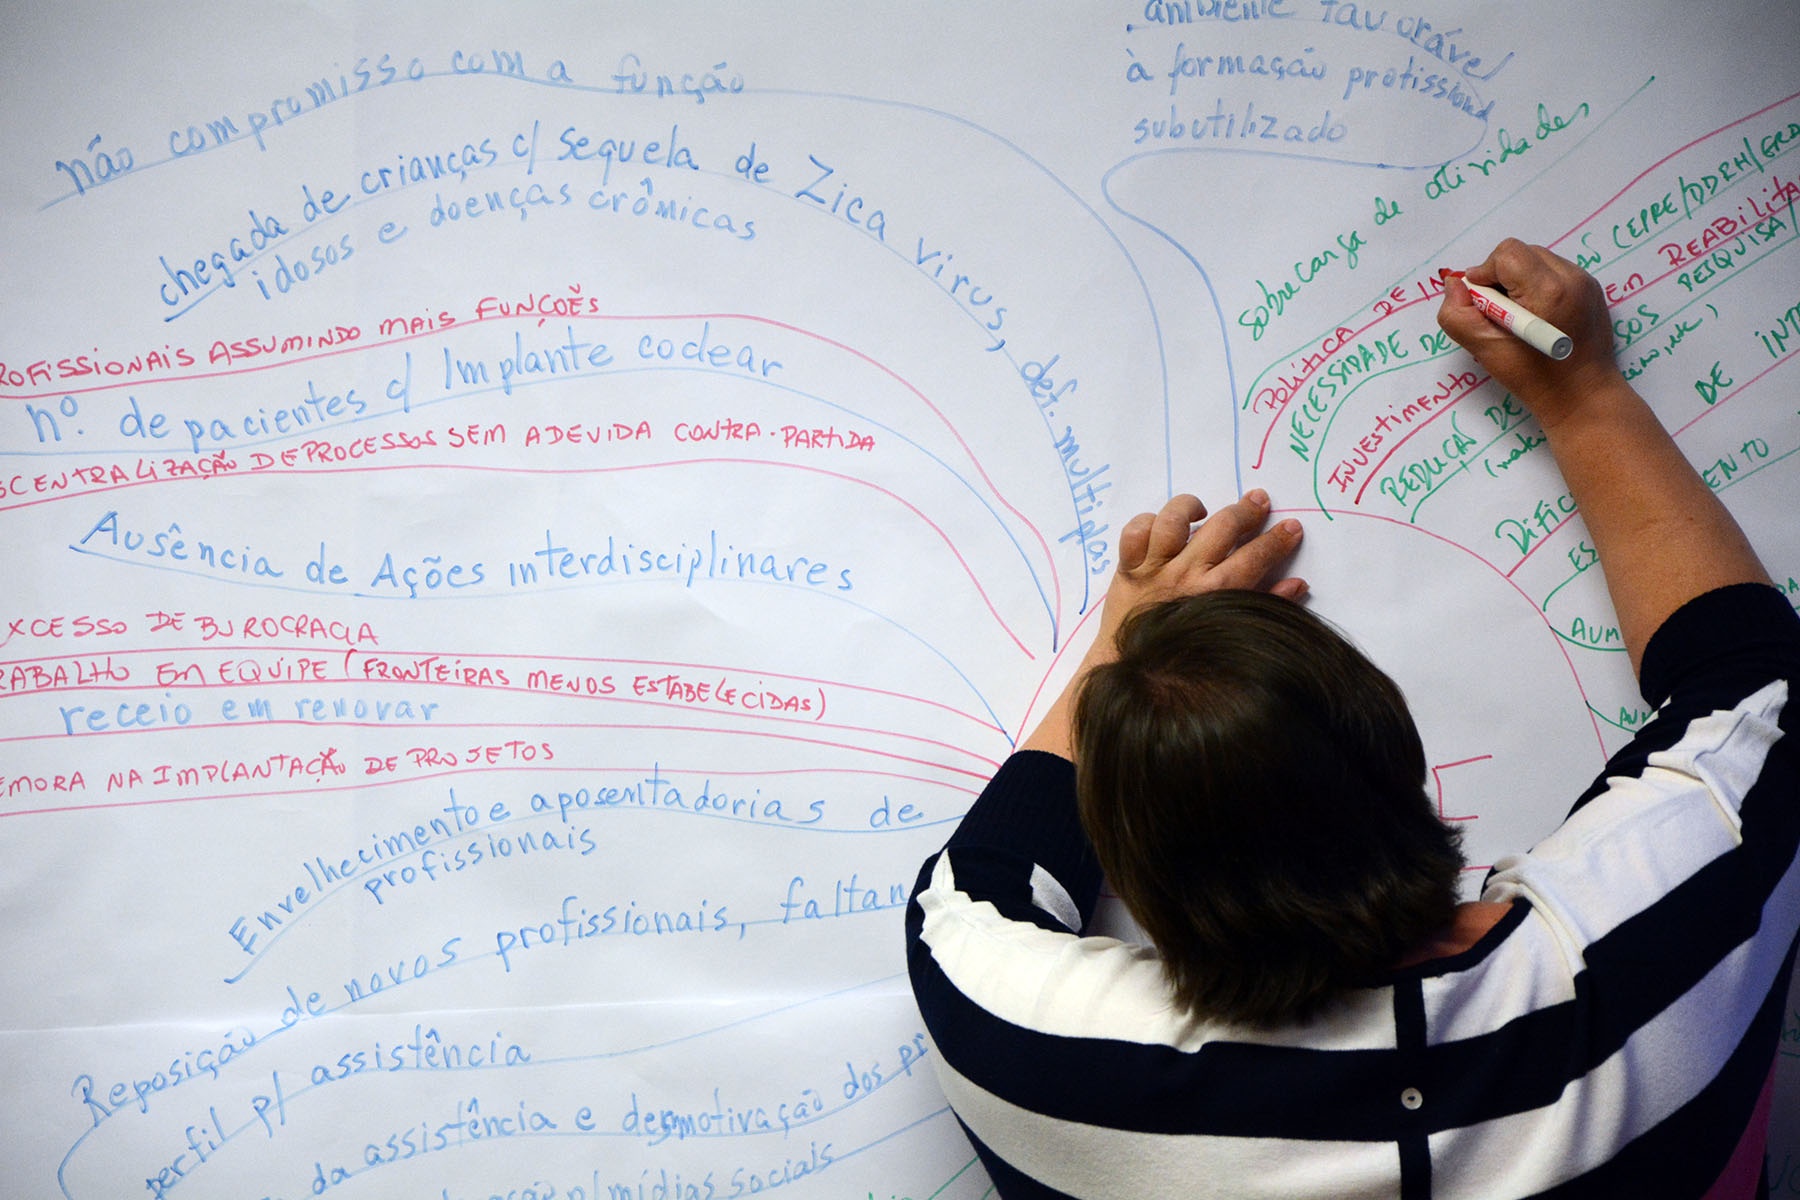 não compromisso com a função
chegada de crianças c/ sequela de Zica virus, def. multiplas
idosos e doenças crômicas
ROFISSIONAIS ASSUMINDO MAIS FUNÇOĔS
nº. de pacientes c/ Implante coclear
SCENTRALIZAÇÃO DE PROCESSOS SEM A DEVIDA CONTRA-PARTIDA
Ausência de Ações interdisciplinares
XCESSO DE BUROCRACIA
RABALHO EM EQUIPE (FRONTEIRAS MENOS ESTABELECIDAS)
receio em renovar
EMORA NA IMPLANTAÇÃO DE PROJETOS
Envelhecimento e aposentadorias de
profissionais
Reposição de novos profissionais, faltan
perfil p/ assistência
da assistência e desmotivação dos pr
p/mídias sociais
ambiente favorável
à formação profissional
subutilizado
sobrecarga de atividades
POLÍTICA DE IN
NECESSIDADE DE
ÃO CEPRE/DDRH/
INVESTIMENTO
EM REABILITA
REDUÇÃO DE
SOS PESQUISA/
(mate
DIFIC
DE INT
ES
ENTO
AUM
AUM